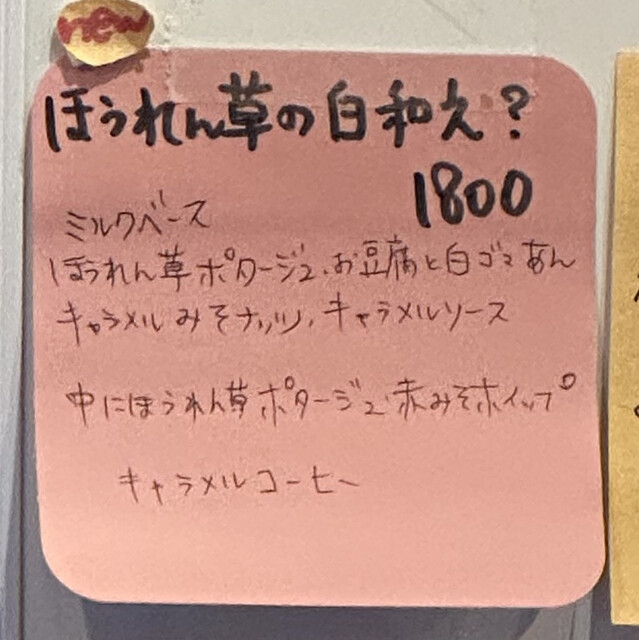 new
ほうれん草の白和え?
1800
ミルクベース
ほうれん草ポタージュ、お豆腐と白ゴマあん
キャラメルみそナッツ、キャラメルソース
中にほうれん草ポタージュ、赤みそホイップ
キャラメルコーヒー